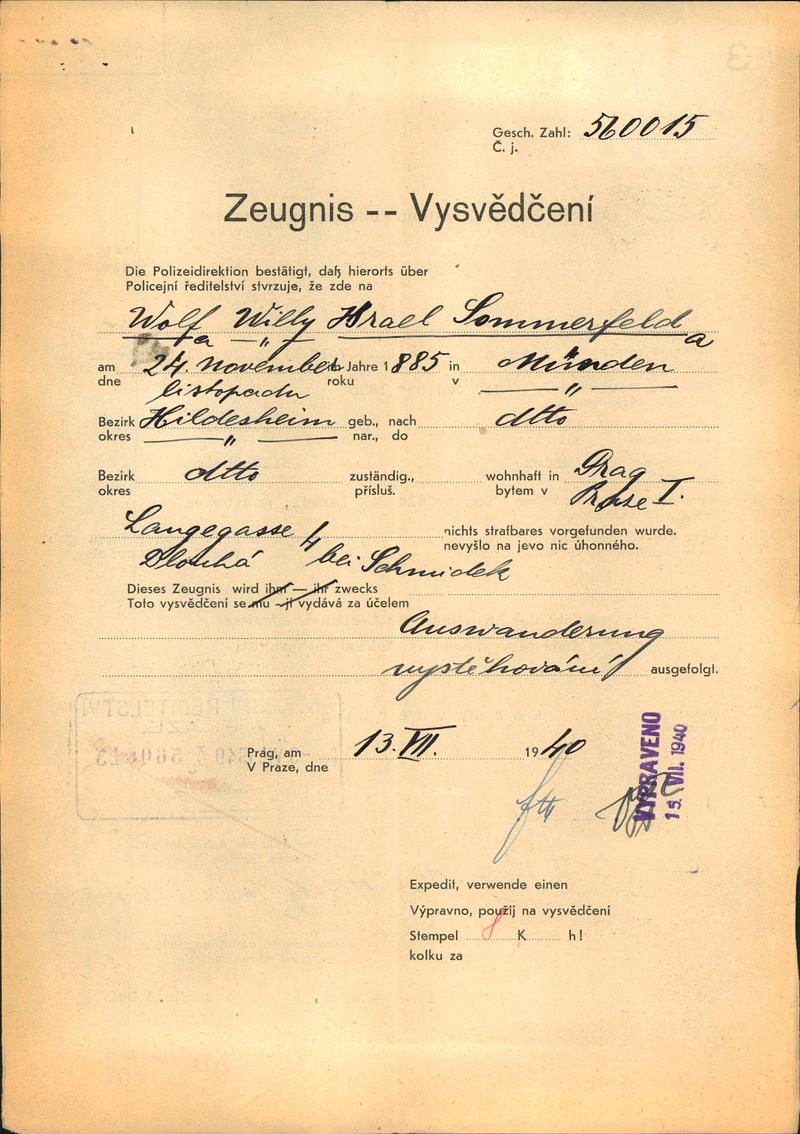 Gesch. Zahl: 560015
Č. j.
Zeugnis -- Vysvědčení
Die Polizeidirektion bestätigt, daß hierorts über
Policejní ředitelství stvrzuje, že zde na
Wolf Willy Israel Sommerfeld
a — " — a
am 24. November im Jahre 1885 in Münden
dne listopadu roku v — " —
Bezirk Hildesheim geb., nach dtto
okres — " — nar., do
Bezirk dtto zuständig., wohnhaft in Prag
okres přísluš. bytem v Praze I.
Langegasse 4 nichts strafbares vorgefunden wurde.
nevyšlo na jevo nic úhonného.
Dlouhá bei Schmidek
Dieses Zeugnis wird ihm — ihr zwecks
Toto vysvědčení se mu - jí vydává za účelem
Auswanderung
vystěhování ausgefolgt.
Prag, am 13. VII. 1940
V Praze, dne
VYPRAVENO
15. VII. 1940
Expedit, verwende einen
Výpravno, použij na vysvědčení
Stempel 8 K h!
kolku za